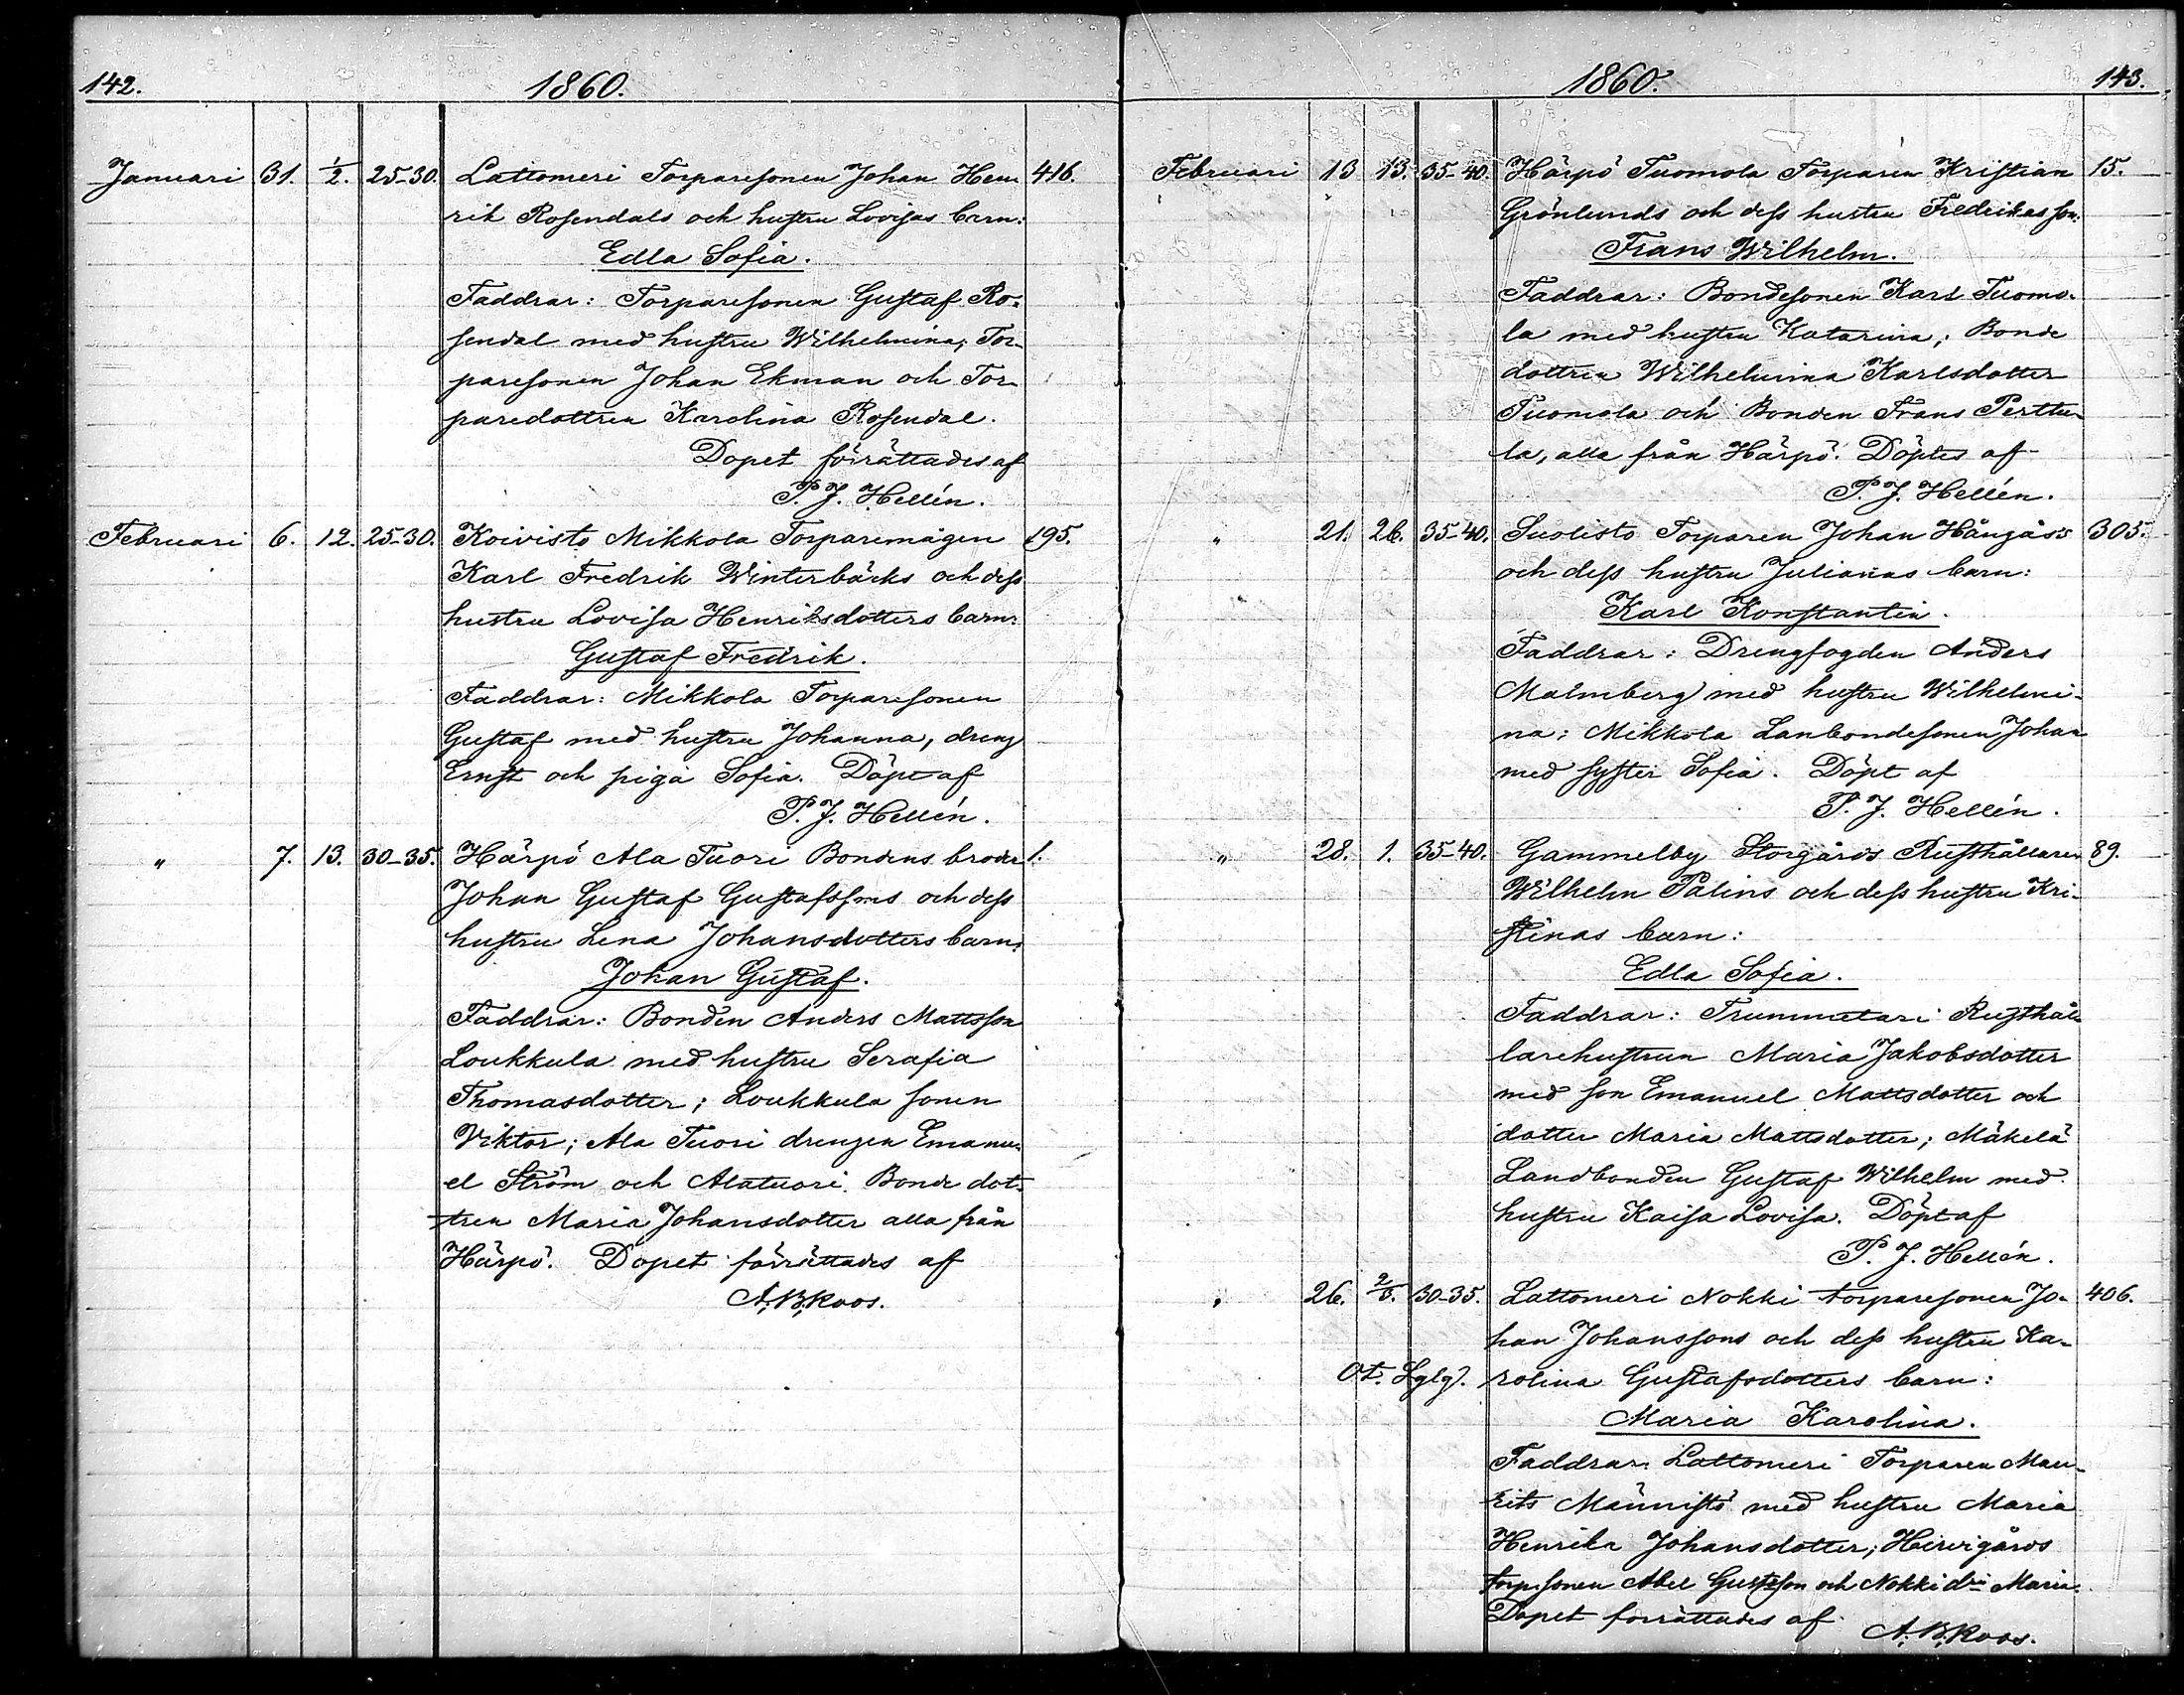 142. 1860.
Januari 31. 1/2. 25-30. Lattomeri Torparesonen Johan Hen-
rik Rosendals och hustru Lovisas barn: 416.
Edla Sofia.
Faddrar: Torparesonen Gustaf Ro-
sendal med hustru Wilhelmina, Tor-
paresonen Johan Ekman och Tor-
paredottren Karolina Rosendal.
Dopet förrättades af
P. J. Hellén.
Februari 6. 12. 25-30. Koivisto Mikkola Torparemågen 195.
Karl Fredrik Winterbäcks och dess
hustru Lovisa Henriksdotters barn:
Gustaf Fredrik.
Faddrar: Mikkola Torparesonen
Gustaf med hustru Johanna, dreng
Ernst och piga Sofia. Döpt af
P. J. Hellén.
" 7. 13. 30-35. Härpö Ala Tuori Bondens broder 1.
Johan Gustaf Gustafssons och dess
hustru Lena Johansdotters barn:
Johan Gustaf.
Faddrar: Bonden Anders Mattsson
Loukkula med hustru Serafia
Thomasdotter; Loukkula sonen
Viktor; Ala Tuori drengen Emanu-
el Ström och Alatuori Bonde dot-
tren Maria Johansdotter alla från
Härpö. Dopet förrättades af
A. B. Roos.
1860. 143.
Februari 13 13. 35-40. Härpö Tuomola Torparen Kristian 15.
Grönlunds och dess hustru Fredrikas son:
Frans Wilhelm.
Faddrar: Bondesonen Karl Tuomo-
la med hustru Katarina; Bonde
dottren Wilhelmina Karlsdotter
Tuomola och Bonden Frans Perttu-
la, alla från Härpö. Döptes af
P. J. Hellén.
" 21. 26. 35-40. Suolisto Torparen Johan Hångåss 305.
och dess hustru Julianas barn:
Karl Konstantin.
Faddrar: Drengfogden Anders
Malmberg med hustru Wilhelmi-
na; Mikkola Lanbondesonen Johan
med syster Sofia. Döpt af
P. J. Hellén.
" 28. 1. 35-40. Gammelby Storgårds Rusthållaren 89.
Wilhelm Palins och dess hustru Kri-
stinas barn:
Edla Sofia.
Faddrar: Trummetari Rusthål-
larehustrun Maria Jakobsdotter
med son Emanuel Mattsdotter och
dotter Maria Mattsdotter; Mäkelä
Landbonden Gustaf Wilhelm med
hustru Kaisa Lovisa. Döpt af
P. J. Hellén.
" 26. 2/3. 30-35. Lattomeri Nokki torparesonen Jo- 406.
han Johanssons och dess hustru Ka-
Ot. Lglg. rolina Gustafsdotters barn:
Maria Karolina.
Faddrar: Lattomeri Torparen Mau-
rits Männistö med hustru Maria
Henrika Johansdotter; Hirvigårds
torp.sonen Abel Gustsson och Nokki dri Maria.
Dopet forrättades af
A. B. Roos.